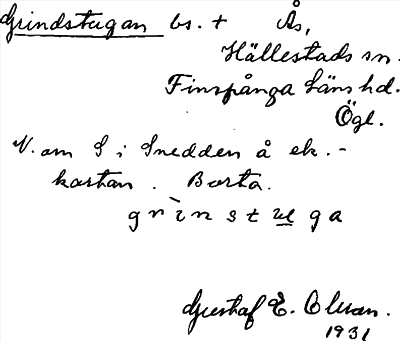 Grindstugan bs. + Ås,
Hällestads sn.
Finspånga läns hd.
Ögl.
V. om S i Snedden å ek. -
kartan. Borta.
grìnstuga
Gustaf E. Olsson.
1931